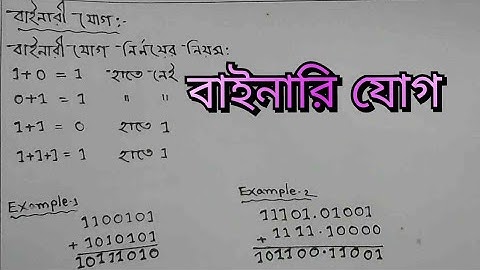 বাইনারী যোগ:-
বাইনারী যোগ নির্নয়ের নিয়ম:
1+0 = 1 হাতে নেই
0+1 = 1 " "
1+1 = 0 হাতে 1
1+1+1 = 1 হাতে 1
বাইনারি যোগ
Example-1
1100101
+ 1010101
10111010
Example-2
11101.01001
+ 1111.10000
101100.11001